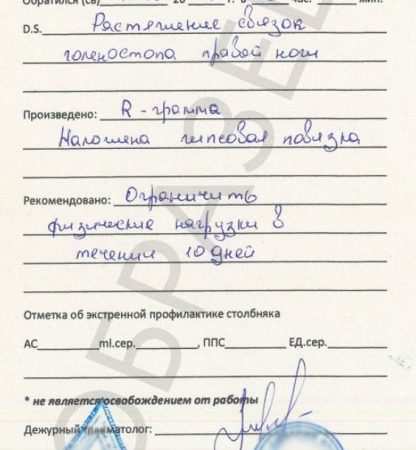 Обратился (сь) 20 г. в час. мин.
D.S. Растяжение связок
голеностопа правой ноги
Произведено: R - грамма
Наложена гипсовая повязка
Рекомендовано: Ограничить
физические нагрузки в
течении 10 дней
Отметка об экстренной профилактике столбняка
АС________ml.сер.________, ППС________ ЕД.сер.________
* не является освобождением от работы
Дежурный травматолог:
ОБРАЗЕЦ